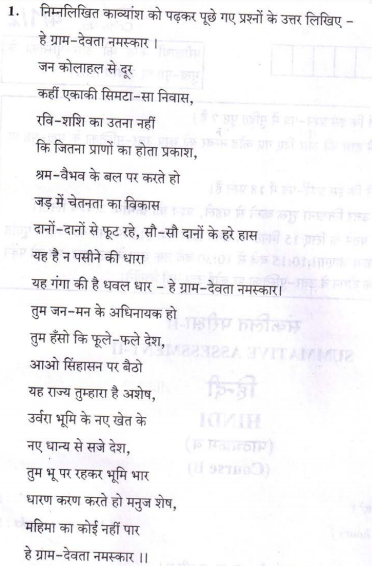 1. निम्नलिखित काव्यांश को पढ़कर पूछे गए प्रश्नों के उत्तर लिखिए –
हे ग्राम-देवता नमस्कार ।
जन कोलाहल से दूर
कहीं एकाकी सिमटा-सा निवास,
रवि-शशि का उतना नहीं
कि जितना प्राणों का होता प्रकाश,
श्रम-वैभव के बल पर करते हो
जड़ में चेतनता का विकास
दानों-दानों से फूट रहे, सौ-सौ दानों के हरे हास
यह है न पसीने की धारा
यह गंगा की है धवल धार – हे ग्राम-देवता नमस्कार।
तुम जन-मन के अधिनायक हो
तुम हँसो कि फूले-फले देश,
आओ सिंहासन पर बैठो
यह राज्य तुम्हारा है अशेष,
उर्वरा भूमि के नए खेत के
नए धान्य से सजे देश,
तुम भू पर रहकर भूमि भार
धारण करण करते हो मनुज शेष,
महिमा का कोई नहीं पार
हे ग्राम-देवता नमस्कार ।।
हिन्दी
HINDI
(Course b)
SUMMATIVE ASSESSMENT-II